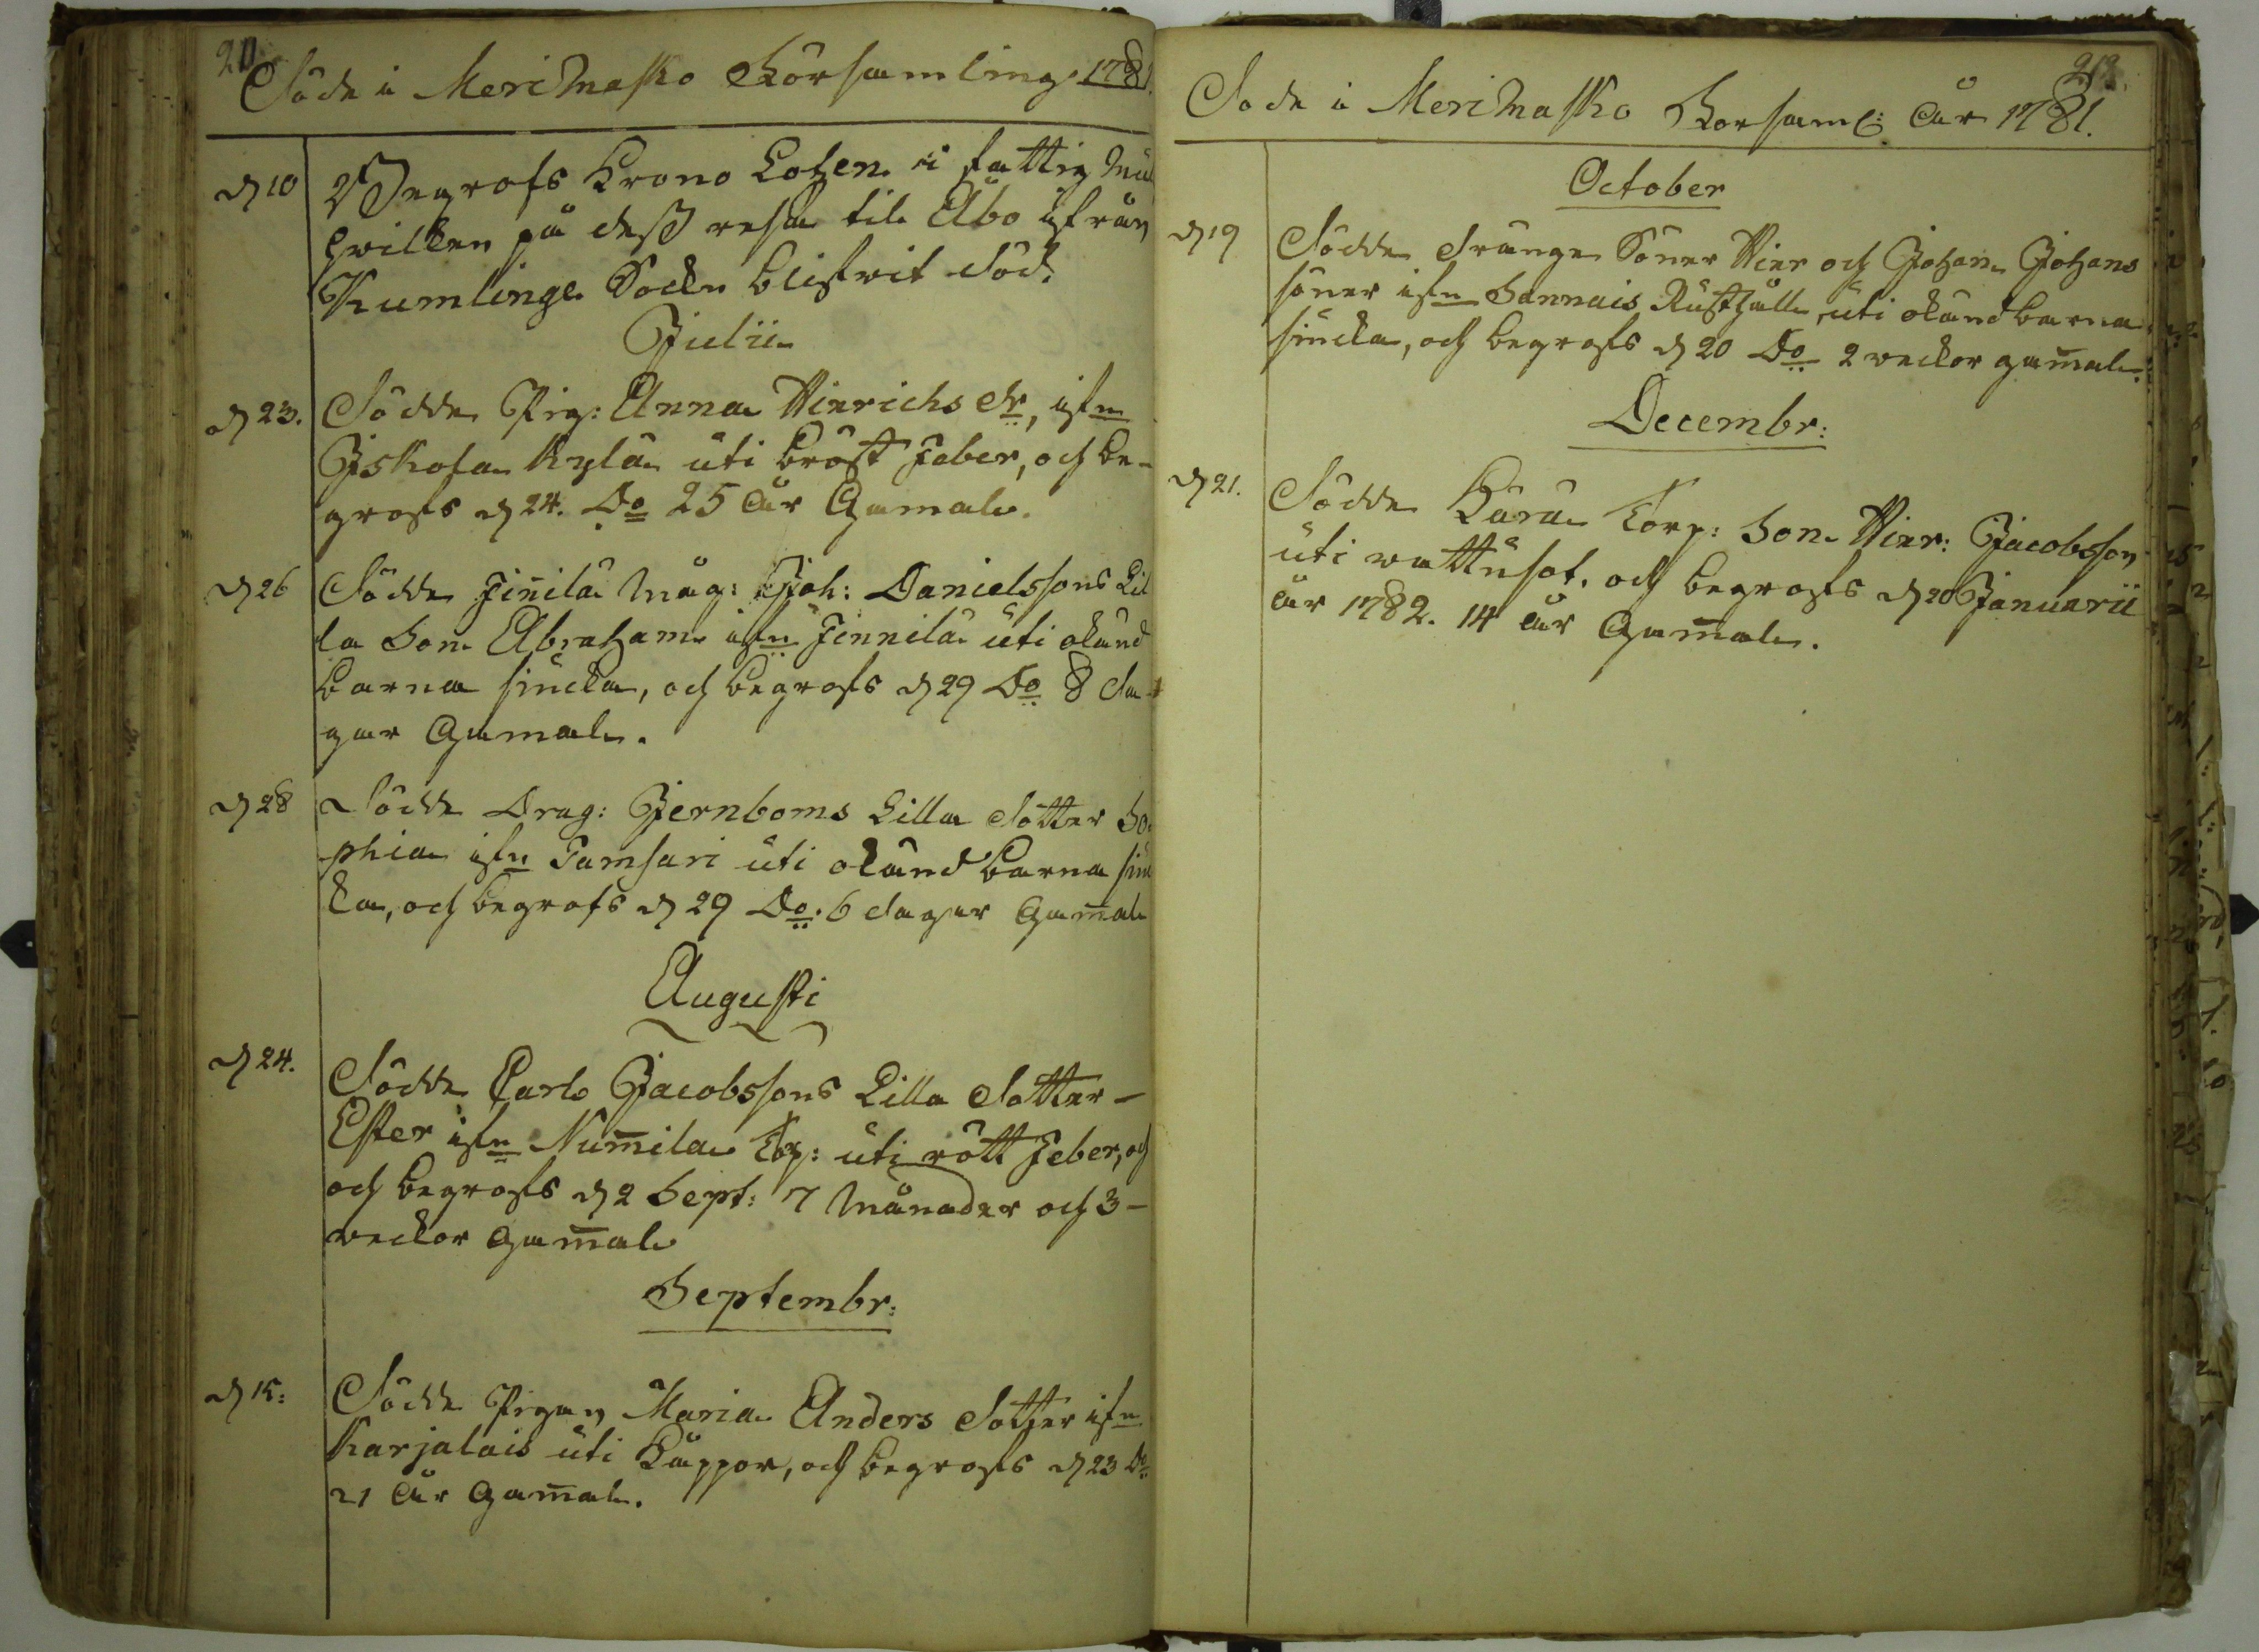 211
Döde i MeriMasko Församling 1781.
d 10 Begrofs Krono Lotsen i fattig
hwilken på dess resa til Åbo ifrån
Kumlinge Sockn blifwit död.
Julii
d 23. Dödde Pig: Anna Hinrichs dr, ifn
Iskola kylä uti bröst feber, och be-
grofs d 24. Do 25 år Gamal.
d 26 Dödde Finnilä Måg: Joh: Danielssons Lil
la Son Abraham ifn Finnilä uti okänd
barna siucka, och begrofs d 29 Do 8 da-
gar Gamal.
d 28 Dödde Drag: Jernboms Lilla dotter So
phia ifn Tamsari uti okänd barna siu
ka, och begrofs d 29 Do. 6 dagar Gam̄al
Augusti
d 24. Dödde Carl Jacobssons Lilla dotter -
Ester ifn Num̄ila Torp: uti rött feber, och
och begrofs d 2 Sept: 7 Månader och 3 -
weckor Gam̄al
Septembr:
d 15: Dödde Pigan Maria Anders dotter ifn
Karjalais uti Kåppor, och begrofs d 23 Do
21 år Gam̄al.
212.
Döde i MeriMasko Forsaml: år 1781.
October
d 19 Dödde Drängs Söner Hinr och Johan Johans
söner ifn Sannais Rusthåll, uti okänd barna
siucka, och begrofs d 20 Do 2 weckor gam̄al.
Decembr:
d 21. Dödde Torp: Son Hinr: Jacobsson
uti wattusot. och begrofs d 20 Januarii
år 1782. 14 år Gam̄al.